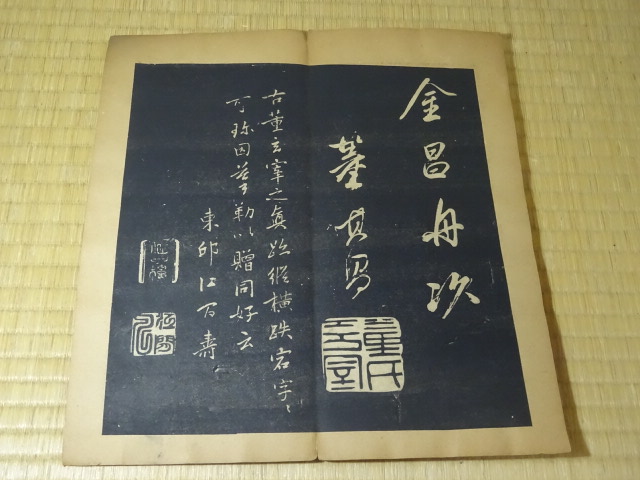 金昌舟次
董其昌
董氏玄宰
右董玄宰之真跡縱橫跌宕字〻
可珍因摹勒以贈同好云
東都江百壽